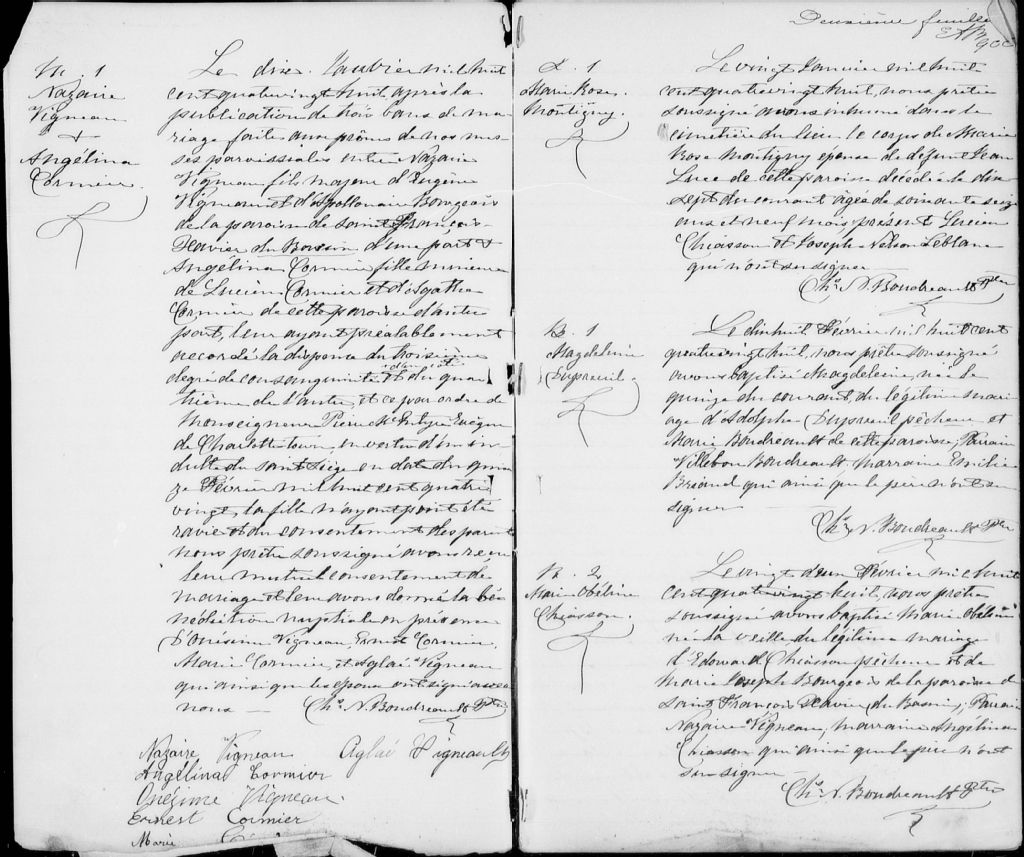 M. 1
Nazaire
Vigneau
+
Angélina
Cormier.
Le dix Janvier mil huit
cent quatrevingt huit, après la
publication de trois bans de ma-
riage faite aux prônes de nos mes-
ses paroissiales entre Nazaire
Vigneau fils majeur d'Eugène
Vigneau et d'Apollonie Bourgeois
de la paroisse de Saint François-
Xavier du Bassin d'une part &
Angélina Cormier fille mineure
de Lucien Cormier et d'Agathe
Cormier de cette paroisse d'autre
part, leur ayant préalablement
accordé la dispense du troisième
degré de consanguinité d'un côté et du qua-
trième de l'autre, et ce par ordre de
Monseigneur Pierre McIntyre Evêque
de Charlottetown, en vertu d'un in-
dulte du saint Siège en date du quin-
ze Février mil huit cent quatre
vingt, la fille n'ayant point été
ravie et du consentement des parents
nous prêtre soussigné avons reçu
leur mutuel consentement de
mariage et leur avons donné la bé-
nédiction nuptiale en présence
d'Onésime Vigneau, Ernest Cormier,
Marie Cormier, et Aglaé Vigneau
qui ainsi que les époux ont signé avec
nous — Chs. N. Boudreault Ptre
Nazaire Vigneau Aglaé Vigneault
Angélina Cormier
Onésime Vigneau.
Ernest Cormier
Marie
Deuxième feuille
S. 1
Marie Rose
Montigny.
Le vingt Janvier mil huit
cent quatrevingt huit, nous prêtre
soussigné avons inhumé dans le
cimetière du lieu le corps de Marie
Rose Montigny épouse de défunt Jean
Luce de cette paroisse décédée le dix
sept du courant âgée de soixante seize
ans et neuf mois, présent Lucien
Chiasson et Joseph Nelson Leblanc
qui n'ont su signer
Chs. N. Boudreault Ptre
B. 1
Magdeleine
Dupreuil.
Le dix huit Février mil huit cent
quatrevingt huit, nous prêtre soussigné
avons baptisé Magdeleine, née le
quinze du courant, du légitime mari-
age d'Adolphe Dupreuil pêcheur et
Marie Boudreault de cette paroisse; Parrain
Villebon Boudreault, Marraine Emilie
Briand qui ainsi que le père n'ont su
signer
Chs. N. Boudreault Ptre
B. 2
Marie Obéline
Chiasson.
Le vingt d'eux Février mil huit
cent quatrevingt huit, nous prêtre
soussigné avons baptisé Marie Obéline
née la veille du légitime mariage
d'Edouard Chiasson pêcheur et de
Marie Josephe Bourgeois de la paroisse de
Saint François Xavier du Bassin; Parrain
Nazaire Vigneau, marraine Angélina
Chiasson qui ainsi que le père n'ont
su signer —
Chs. N. Boudreault Ptre